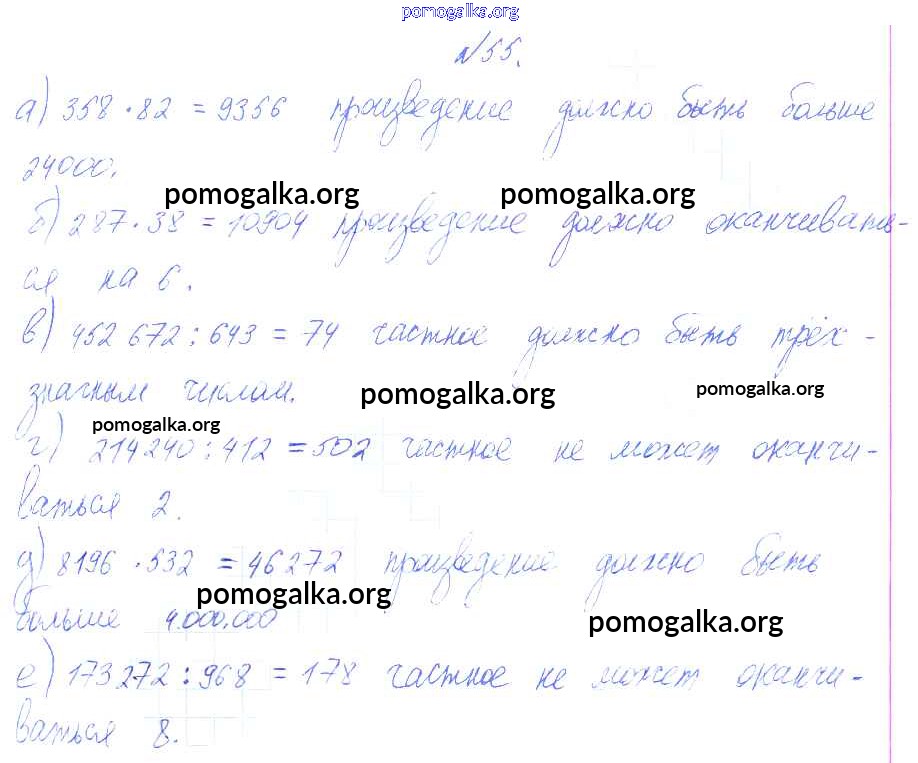 pomogalka.org
№55.
а) 358 · 82 = 9356 произведение должно быть больше
24000.
pomogalka.org pomogalka.org
б) 287 · 38 = 10904 произведение должно оканчивать-
ся на 6.
в) 452 672 : 643 = 74 частное должно быть трёх-
значным числом.
pomogalka.org pomogalka.org
pomogalka.org
г) 214240 : 412 = 502 частное не может оканчи-
ваться 2.
д) 8196 · 532 = 46272 произведение должно быть
pomogalka.org
больше 4.000.000
pomogalka.org
е) 173272 : 968 = 178 частное не может оканчи-
ваться 8.